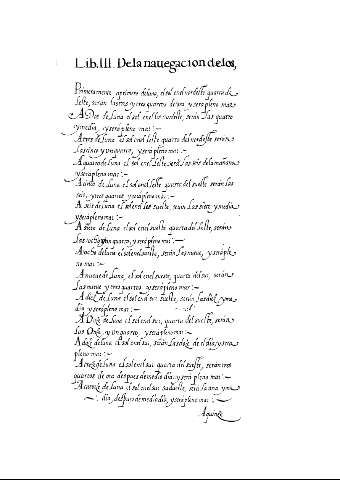 Lib. III. De la nauegacion de los,
Primeramente a primero de luna, el sol en el nordeste quarta de
leste, serán las tres y tres quartos de ora y sera plena mar.
A Dos de luna el sol en el les nordeste, serán las quatro
y media, y sera plena mar:~
A tres de luna el sol en el leste quarta del nordeste seran
las cinco y un quarto, y sera plena mar:~
A quatro de luna el sol en el leste será las seis de la mañana
y sera plena mar:~
A cinco de luna, el sol en el leste quarta del sueste, serán las
seis, y tres quartos, y sera plena mar:~
A seis de luna el sol en el les sueste, serán las siete y media
y sera plena mar:~
A siete de luna, el sol en el sueste quarta de leste, serán
las ocho y un quarto, y sera plena mar:~
A ocho de luna el sol en el sueste, serán las nueue, y sera ple
na mar:~
A nueue de luna, el sol en el sueste, quarta del sur, serán
las nueue y tres quartos, y sera plena mar:~
A diez de luna el sol en el sur sueste, serán las diez y me
dia y sera plena mar:~
A Onze de luna el sol en el sur, quarta del sueste, serán
las Onze, y un quarto, y sera plena mar:~
A doze de luna el sol en el sur, serán las doze del dia, y sera
plena mar:~
A treze de luna el sol en el sur quarta del sueste, serán tres
quartos de ora despues de medio dia, y sera plena mar:~
A catorze de luna el sol en el sur sudueste, será la una y me
dia, despues de medio dia, y sera plena mar:~
A quinze